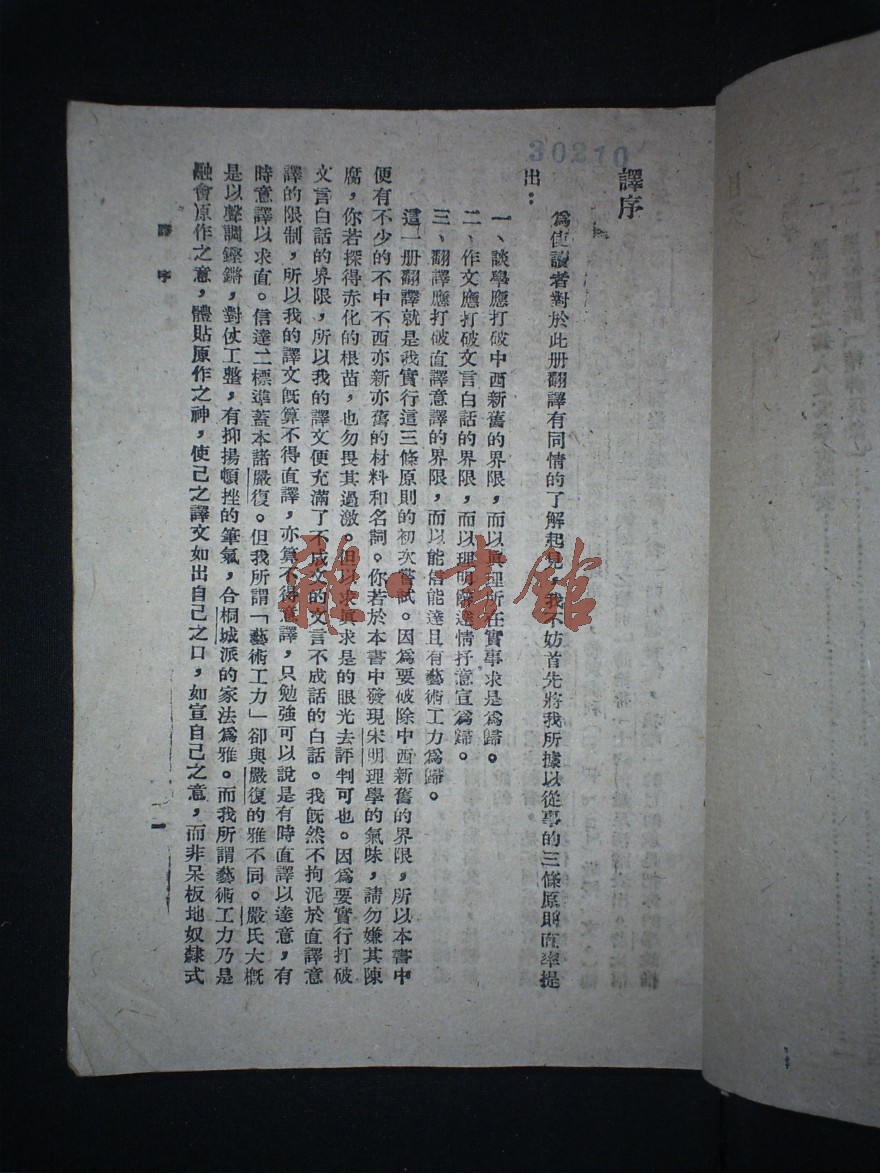 30210
譯序
爲使讀者對於此册翻譯有同情的了解起見,我不妨首先將我所據以從事的三條原則直率提
出:
一、談學應打破中西新舊的界限,而以眞理所在實事求是爲歸。
二、作文應打破文言白話的界限,而以理明辭達情抒意宣爲歸。
三、翻譯應打破直譯意譯的界限,而以能信能達且有藝術工力爲歸。
這一册翻譯就是我實行這三條原則的初次嘗試。因爲要破除中西新舊的界限,所以本書中
便有不少的不中不西亦新亦舊的材料和名詞。你若於本書中發現宋明理學的氣味,請勿嫌其陳
腐,你若探得赤化的根苗,也勿畏其過激。但以求眞求是的眼光去評判可也。因爲要實行打破
文言白話的界限,所以我的譯文便充滿了不成文的文言不成話的白話。我旣然不拘泥於直譯意
譯的限制,所以我的譯文旣算不得直譯,亦算不得意譯,只勉強可以說是有時直譯以達意,有
時意譯以求直。信達二標準蓋本諸嚴復。但我所謂「藝術工力」卻與嚴復的雅不同。嚴氏大槪
是以聲調鏗鏘,對仗工整,有抑揚頓挫的筆氣,合桐城派的家法爲雅。而我所謂藝術工力乃是
融會原作之意,體貼原作之神,使己之譯文如出自己之口,如宣自己之意,而非呆板地奴隸式
譯序
一
雜·書館